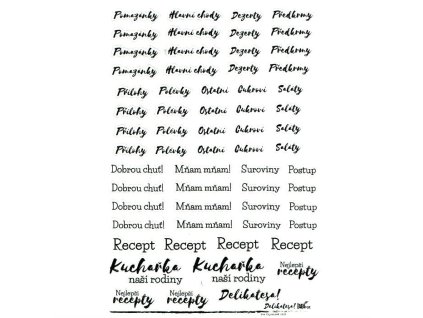 Pomazánky Hlavní chody Dezerty Předkrmy
Pomazánky Hlavní chody Dezerty Předkrmy
Pomazánky Hlavní chody Dezerty Předkrmy
Pomazánky Hlavní chody Dezerty Předkrmy
Přílohy Polévky Ostatní Cukroví Saláty
Přílohy Polévky Ostatní Cukroví Saláty
Přílohy Polévky Ostatní Cukroví Saláty
Přílohy Polévky Ostatní Cukroví Saláty
Dobrou chuť! Mňam mňam! Suroviny Postup
Dobrou chuť! Mňam mňam! Suroviny Postup
Dobrou chuť! Mňam mňam! Suroviny Postup
Dobrou chuť! Mňam mňam! Suroviny Postup
Recept Recept Recept Recept
Kuchařka Kuchařka
naší rodiny naší rodiny
Nejlepší Nejlepší Delikatesa! Nejlepší
recepty recepty Delikatesa! recepty